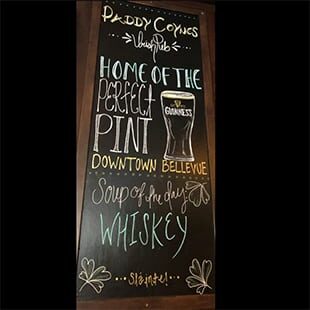 PADDY COYNES
Irish Pub
HOME OF THE
PERFECT
PINT
GUINNESS
DOWNTOWN BELLEVUE
Soup of the day:
WHISKEY
Sláinte!